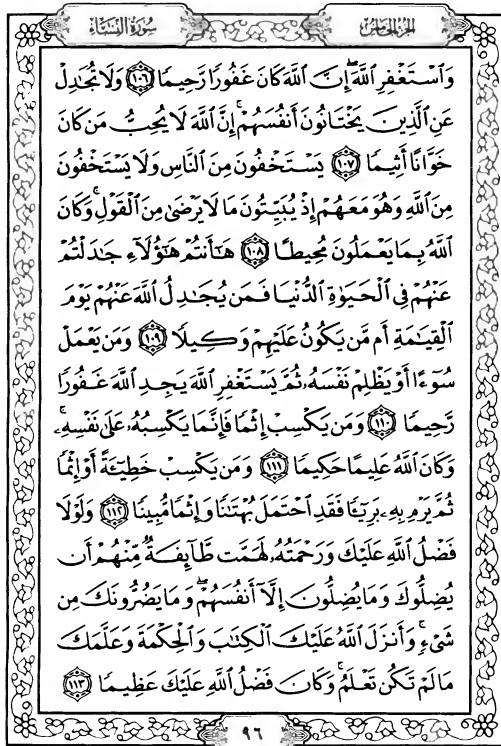 سُورَةُ النِّسَاءِ
الجُزْءُ الخَامِسُ
وَٱسۡتَغۡفِرِ ٱللَّهَۖ إِنَّ ٱللَّهَ كَانَ غَفُورٗا رَّحِيمٗا ١٠٦ وَلَا تُجَٰدِلۡ
عَنِ ٱلَّذِينَ يَخۡتَانُونَ أَنفُسَهُمۡۚ إِنَّ ٱللَّهَ لَا يُحِبُّ مَن كَانَ
خَوَّانًا أَثِيمٗا ١٠٧ يَسۡتَخۡفُونَ مِنَ ٱلنَّاسِ وَلَا يَسۡتَخۡفُونَ
مِنَ ٱللَّهِ وَهُوَ مَعَهُمۡ إِذۡ يُبَيِّتُونَ مَا لَا يَرۡضَىٰ مِنَ ٱلۡقَوۡلِۚ وَكَانَ
ٱللَّهُ بِمَا يَعۡمَلُونَ مُحِيطًا ١٠٨ هَٰٓأَنتُمۡ هَٰٓؤُلَآءِ جَٰدَلۡتُمۡ
عَنۡهُمۡ فِي ٱلۡحَيَوٰةِ ٱلدُّنۡيَا فَمَن يُجَٰدِلُ ٱللَّهَ عَنۡهُمۡ يَوۡمَ
ٱلۡقِيَٰمَةِ أَم مَّن يَكُونُ عَلَيۡهِمۡ وَكِيلٗا ١٠٩ وَمَن يَعۡمَلۡ
سُوٓءًا أَوۡ يَظۡلِمۡ نَفۡسَهُۥ ثُمَّ يَسۡتَغۡفِرِ ٱللَّهَ يَجِدِ ٱللَّهَ غَفُورٗا
رَّحِيمٗا ١١٠ وَمَن يَكۡسِبۡ إِثۡمٗا فَإِنَّمَا يَكۡسِبُهُۥ عَلَىٰ نَفۡسِهِۦۚ
وَكَانَ ٱللَّهُ عَلِيمًا حَكِيمٗا ١١١ وَمَن يَكۡسِبۡ خَطِيٓـَٔةً أَوۡ إِثۡمٗا
ثُمَّ يَرۡمِ بِهِۦ بَرِيٓـٔٗا فَقَدِ ٱحۡتَمَلَ بُهۡتَٰنٗا وَإِثۡمٗا مُّبِينٗا ١١٢ وَلَوۡلَا
فَضۡلُ ٱللَّهِ عَلَيۡكَ وَرَحۡمَتُهُۥ لَهَمَّت طَّآئِفَةٞ مِّنۡهُمۡ أَن
يُضِلُّوكَ وَمَا يُضِلُّونَ إِلَّآ أَنفُسَهُمۡۖ وَمَا يَضُرُّونَكَ مِن
شَيۡءٖۚ وَأَنزَلَ ٱللَّهُ عَلَيۡكَ ٱلۡكِتَٰبَ وَٱلۡحِكۡمَةَ وَعَلَّمَكَ
مَا لَمۡ تَكُن تَعۡلَمُۚ وَكَانَ فَضۡلُ ٱللَّهِ عَلَيۡكَ عَظِيمٗا ١١٣
٩٦